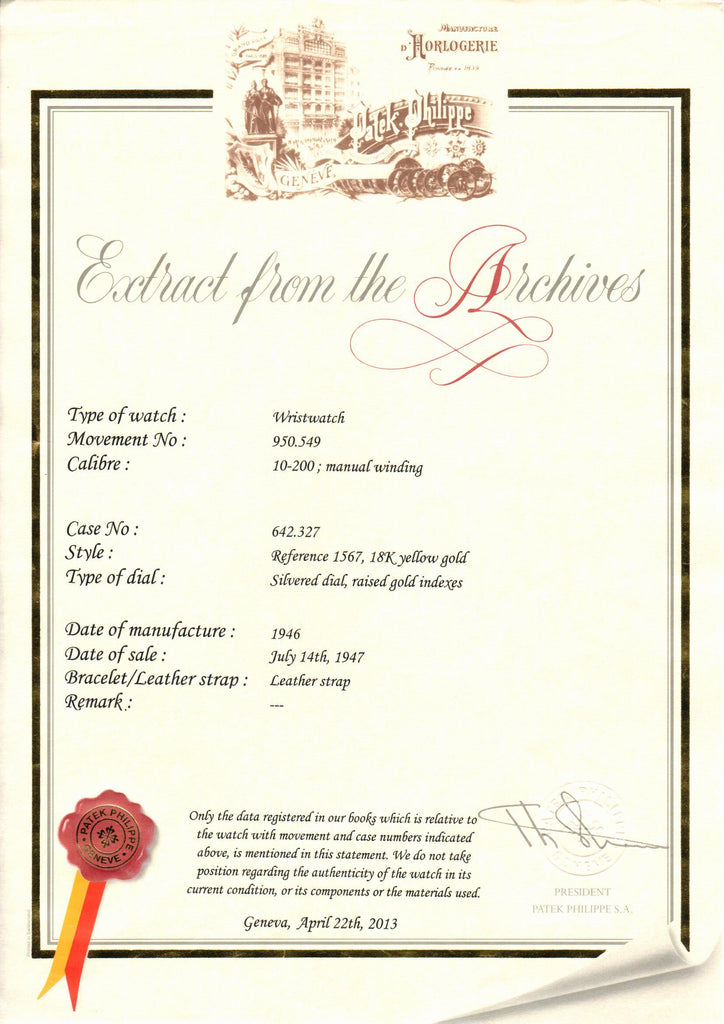 MANUFACTURE
D'HORLOGERIE
FONDÉE EN 1839
GRAND PRIX
Patek Philippe
GENÈVE
Extract from the Archives
Type of watch : Wristwatch
Movement No : 950.549
Calibre : 10-200 ; manual winding
Case No : 642.327
Style : Reference 1567, 18K yellow gold
Type of dial : Silvered dial, raised gold indexes
Date of manufacture : 1946
Date of sale : July 14th, 1947
Bracelet/Leather strap : Leather strap
Remark : ---
PATEK PHILIPPE
GENEVE
Only the data registered in our books which is relative to
the watch with movement and case numbers indicated
above, is mentioned in this statement. We do not take
position regarding the authenticity of the watch in its
current condition, or its components or the materials used.
Geneva, April 22th, 2013
PATEK PHILIPPE
GENEVE
PRESIDENT
PATEK PHILIPPE S.A.